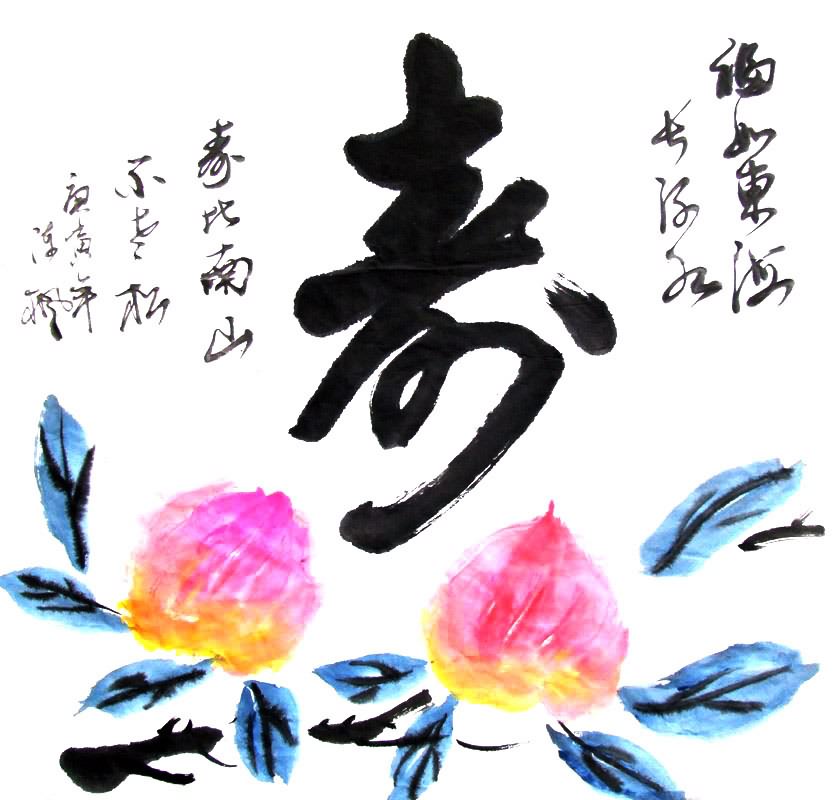 福如東海
长流水
寿
寿比南山
不老松
庚寅年